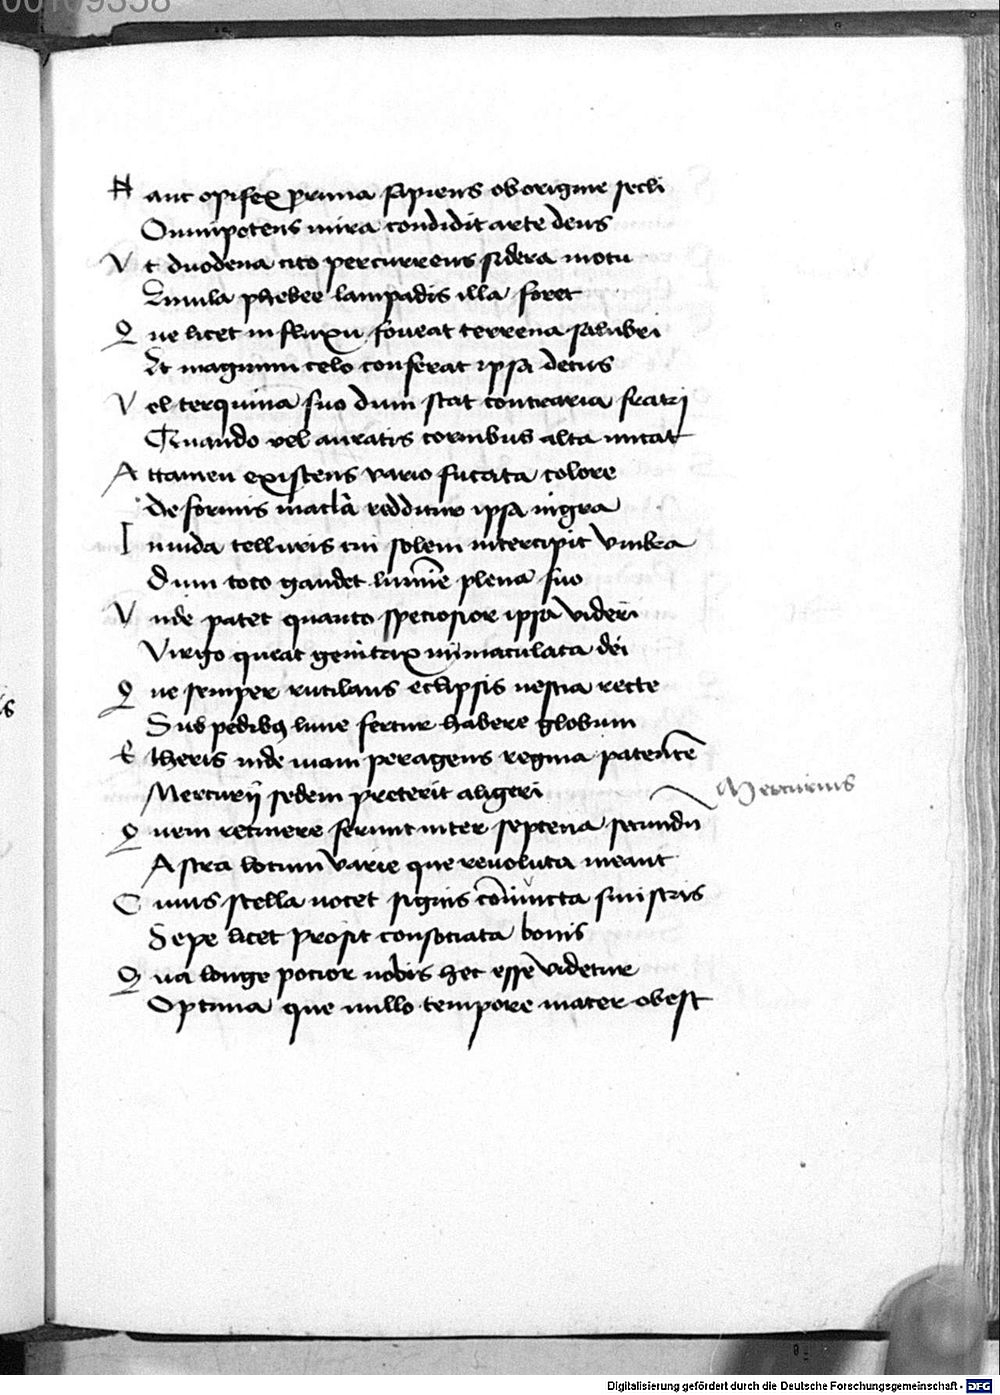 00109358
Hanc opifex prima sapiens ob origine secli
Omnipotens mira condidit arte deus
Vt duodena cito percurrens sidera motu
Emula phebee lampadis illa foret
Que licet influxu foueat terrena salubri
Et magnum celo conferat ipsa decus
Vel terquina suo dum stat contraria fratri
Quando vel auratis cornibus alta mitat
Attamen existens vario fucata colore
De formis macla redditur ipsa nigra
Inuida telluris cui solem intercipit vmbra
Dum toto gaudet lumine plena suo
Vnde patet quanto speciosior ipsa videri
Virgo queat genitrix immaculata dei
Que semper rutilans eclipsis nescia recte
Sub pedibꝯ lune fertur habere globum
Etheris inde uiam peragens regina patentē
Mercurij sedem preterit aligeri
Mercurius
Quem retinere ferunt inter septena secundū
Astra locum varie que reuoluta meant
Cuius stella nocet signis cōiuncta sinistris
Sepe licet prosit consociata bonis
Qua longe potior nobis hec esse videtur
Optima que nullo tempore mater obest
is
Digitalisierung gefördert durch die Deutsche Forschungsgemeinschaft - DFG